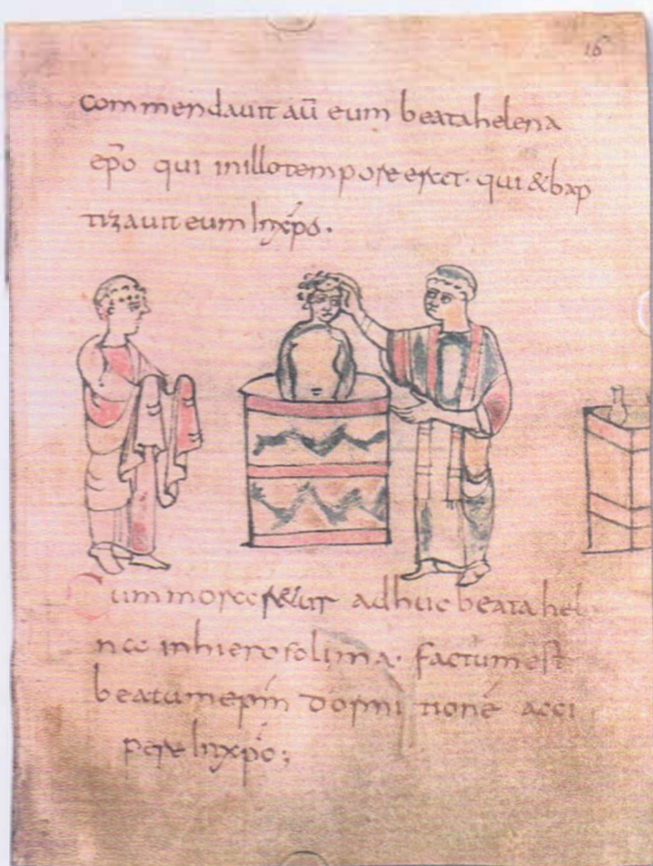 16
commendauit aū eum beatahelena
ep̄o qui inillotempore erat· qui &bap
tizauit eum Inxp̄o·
Cum morar&ur adhuc beatahel
na inhierosolima· factumest
beatumep̄m dormi tionē acci
pere Inxp̄o;